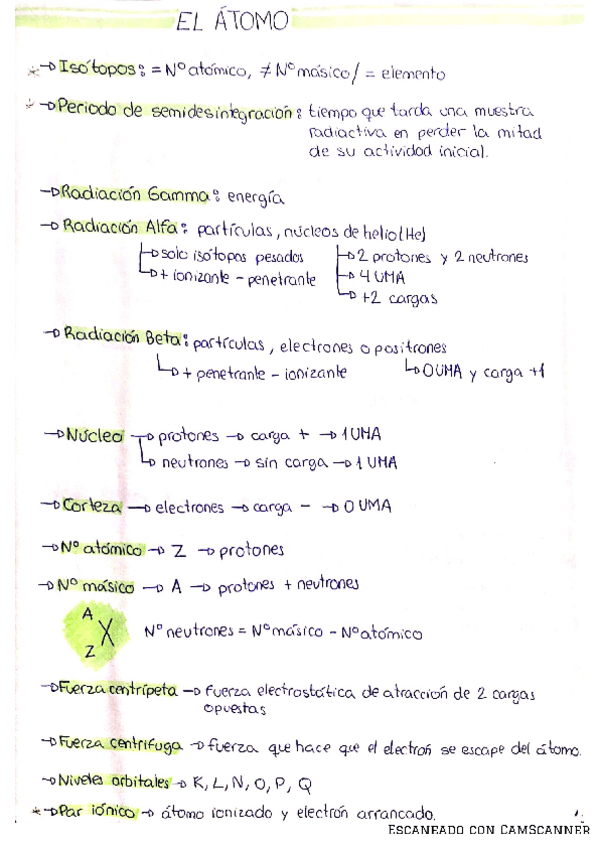 EL ÁTOMO
* → Isótopos: = Nº atómico, ≠ Nº másico / = elemento
* → Periodo de semidesintegración: tiempo que tarda una muestra
radiactiva en perder la mitad
de su actividad inicial.
→ Radiación Gamma: energía
→ Radiación Alfa: partículas, núcleos de helio (He)
→ solo isótopos pesados → 2 protones y 2 neutrones
→ + ionizante - penetrante → 4 UMA
→ +2 cargas
→ Radiación Beta: partículas, electrones o positrones
→ + penetrante - ionizante → 0 UMA y carga +1
→ Núcleo → protones → carga + → 1 UMA
→ neutrones → sin carga → 1 UMA
→ Corteza → electrones → carga - → 0 UMA
→ Nº atómico → Z → protones
→ Nº másico → A → protones + neutrones
A
X Nº neutrones = Nº másico - Nº atómico
Z
→ Fuerza centrípeta → fuerza electrostática de atracción de 2 cargas
opuestas
→ Fuerza centrifuga → fuerza que hace que el electrón se escape del átomo.
→ Niveles orbitales → K, L, N, O, P, Q
* → Par iónico → átomo ionizado y electrón arrancado.
ESCANEADO CON CAMSCANNER